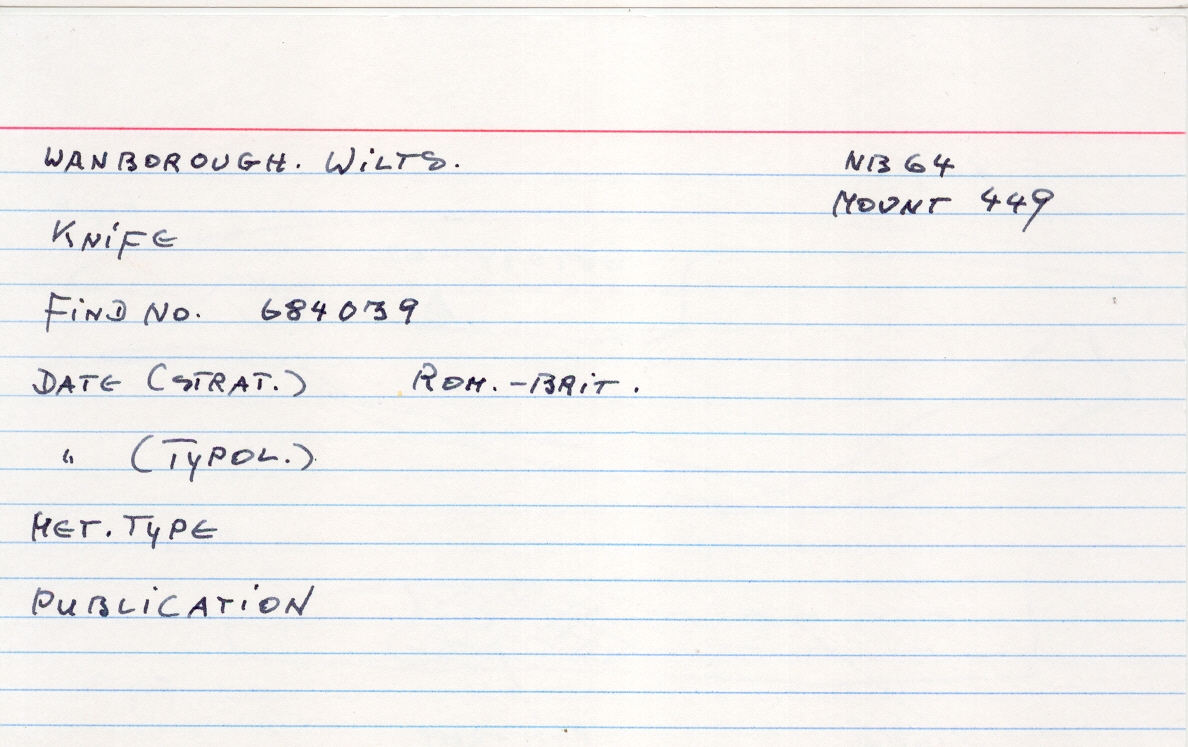 WANBOROUGH. WiLTS.
NB 64
MOUNT 449
KNiFE
FiND No. 684039
DATE (STRAT.) ROM.-BRiT.
" (TYPOL.)
MET. TYPE
PUBLiCATiON